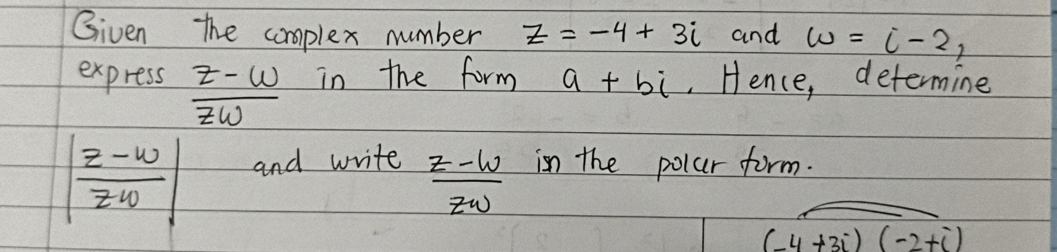 Given the complex number z = -4 + 3i and w = i - 2,
express z - w / zw in the form a + bi. Hence, determine
| z - w / zw | and write z - w / zw in the polar form.
(-4 +3i) (-2+i)